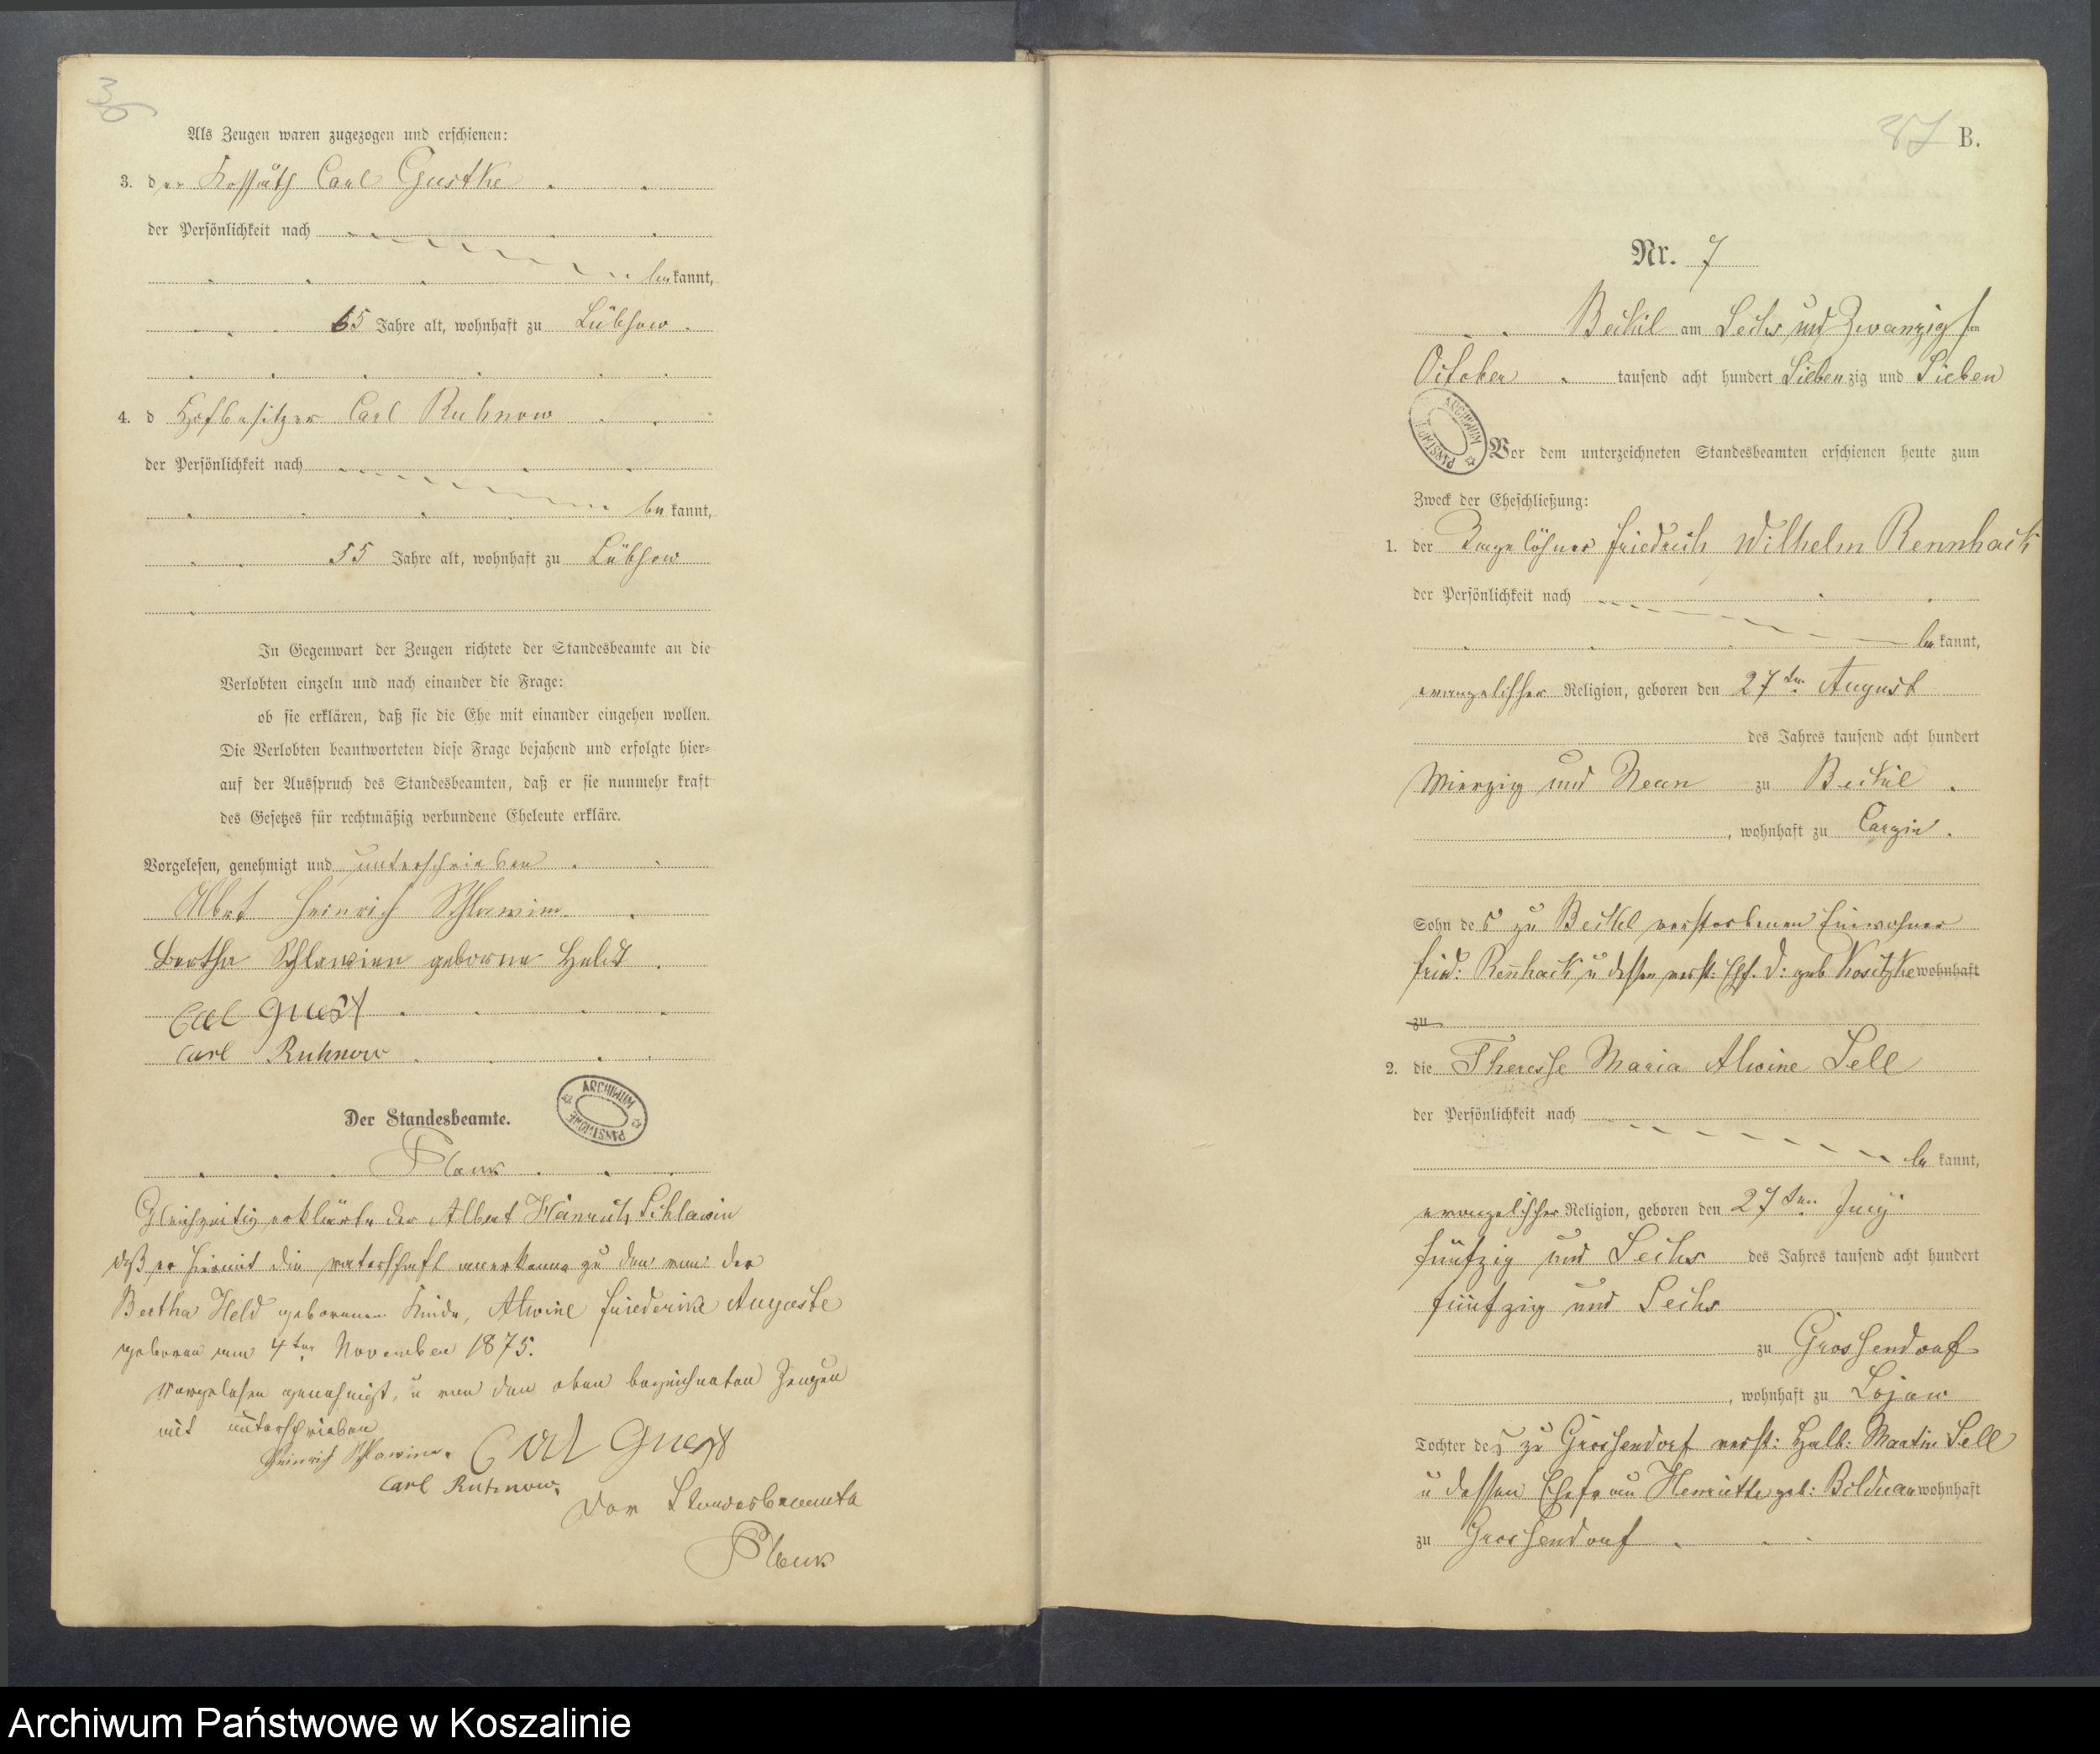 36
Als Zeugen waren zugezogen und erschienen:
3. der Kossäth Carl Gustke
der Persönlichkeit nach
bekannt,
65 Jahre alt, wohnhaft zu Lübsow.
4. d Hofbesitzer Carl Ruhnow
der Persönlichkeit nach
bekannt,
55 Jahre alt, wohnhaft zu Lübsow
In Gegenwart der Zeugen richtete der Standesbeamte an die
Verlobten einzeln und nach einander die Frage:
ob sie erklären, daß sie die Ehe mit einander eingehen wollen.
Die Verlobten beantworteten diese Frage bejahend und erfolgte hier-
auf der Ausspruch des Standesbeamten, daß er sie nunmehr kraft
des Gesetzes für rechtmäßig verbundene Eheleute erkläre.
Vorgelesen, genehmigt und unterschrieben
Albert Heinrich Schlawien
Bertha Schlawien geborne Heldt
Carl
Carl Ruhnow
Der Standesbeamte.
ARCHIWUM PAŃSTWOWE
Gleichzeitig erklärte der Albert Heinrich Schlawin
daß er hiermit die vaterschaft anerkenne zu dem von der
Bertha Held geborenen Kinde, Alwine Friederike Auguste
geboren am 4ten November 1875.
Vorgelesen genehmigt, u von den oben bezeichneten Zeugen
mit unterschrieben
Heinrich Schlawien. Carl
Carl Ruhnow.
Der Standesbeamte
37 B.
Nr. 7
Beckel am Sechs und Zwanzigsten
October tausend acht hundert Siebenzig und Sieben
ARCHIWUM PAŃSTWOWE
Vor dem unterzeichneten Standesbeamten erschienen heute zum
Zweck der Eheschließung:
1. der Tagelöhner Friedrich Wilhelm Rennhack
der Persönlichkeit nach
bekannt,
evangelischer Religion, geboren den 27ten August
des Jahres tausend acht hundert
Vierzig und Neun zu Beckel
, wohnhaft zu Carzin.
Sohn des zu Beckel verstorbenen Einwohner
Fried: Rennhack u dessen verst: Ehf. D: geb Kositzke wohnhaft
zu
2. die Therese Maria Alwine Sell
der Persönlichkeit nach
bekannt,
evangelischer Religion, geboren den 27ten Juny
fünfzig und Sechs des Jahres tausend acht hundert
fünfzig und Sechs
zu Grossendorf
, wohnhaft zu Lojow
Tochter des zu Grossendorf verst: Halb: Martin Sell
u dessen Ehefrau Henriette geb: wohnhaft
zu Grossendorf
Archiwum Państwowe w Koszalinie